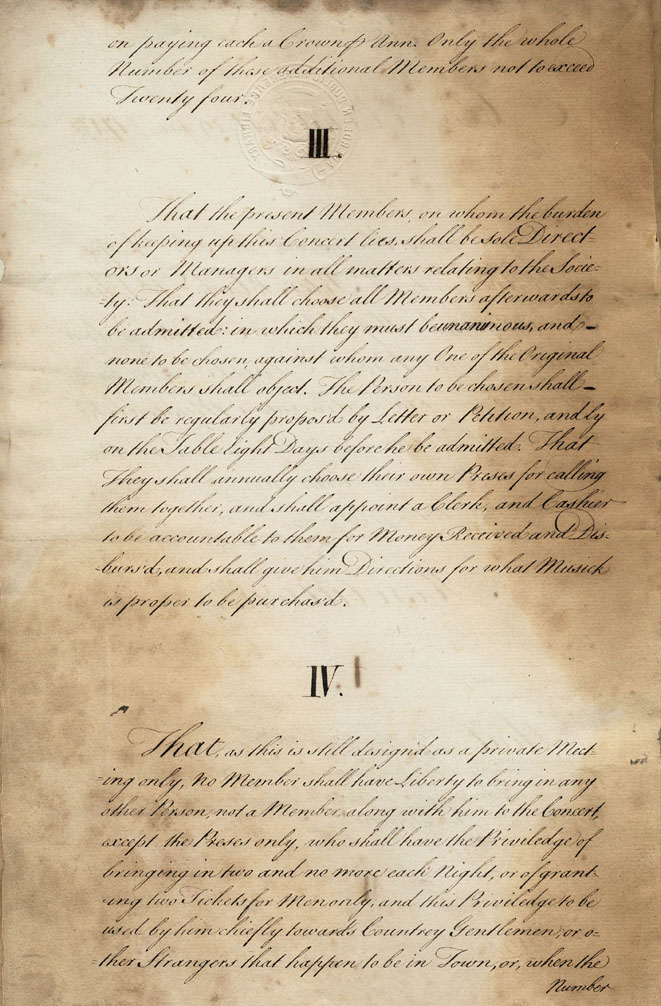 on paying each a Crown ⅌ Ann. Only the whole
Number of these additional Members not to exceed
Twenty four.
III.
That the present Members, on whom the burden
of keeping up this Concert lies, shall be sole Direct-
ors or Managers in all matters relating to the Socie-
-ty: That they shall choose all Members afterwards to
be admitted: in which they must be unanimous, and –
none to be chosen, against whom any One of the Original
Members shall object. The Person to be chosen shall –
first be regularly propos'd by Letter or Petition, and ly
on the Table Eight Days before he be admitted. That
They shall annually choose their own Preses for calling
them together, and shall appoint a Clerk, and Cashier
to be accountable to them for Money Received and Dis-
-burs'd, and shall give him Directions for what Musick
is proper to be purchas'd.
IV.
That, as this is still design'd as a private Meet-
-ing only, No Member shall have Liberty to bring in any
other Person, not a Member, along with him to the Concert,
except the Preses only, who shall have the Priviledge of
bringing in two and no more each Night, or of grant-
-ing two Tickets for Men only, and this Priviledge to be
used by him chiefly towards Countrey Gentlemen, or o-
-ther Strangers that happen to be in Town, or, when the
Number